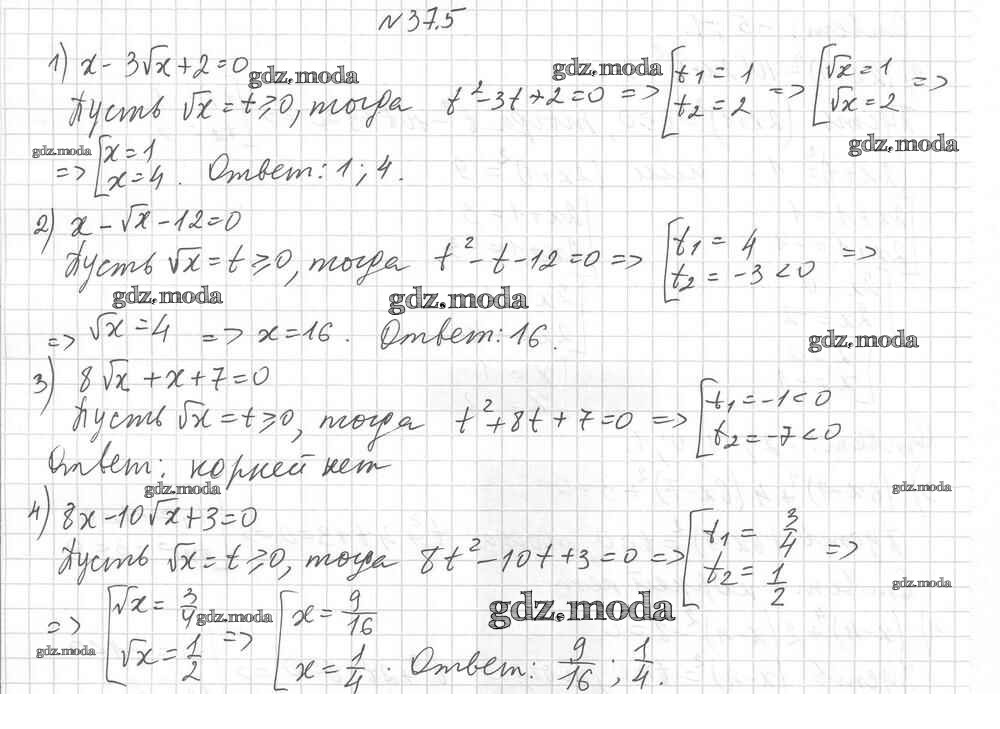 №37.5
1) x - 3√x + 2 = 0
gdz.moda
gdz.moda
Пусть √x = t ≥ 0, тогда t² - 3t + 2 = 0 => [t₁ = 1 t₂ = 2 => [√x = 1 √x = 2 =>
gdz.moda
gdz.moda
=> [x = 1 x = 4. Ответ: 1; 4.
2) x - √x - 12 = 0
Пусть √x = t ≥ 0, тогда t² - t - 12 = 0 => [t₁ = 4 t₂ = -3 < 0 =>
gdz.moda
gdz.moda
=> √x = 4 => x = 16. Ответ: 16.
gdz.moda
3) 8√x + x + 7 = 0
Пусть √x = t ≥ 0, тогда t² + 8t + 7 = 0 => [t₁ = -1 < 0 t₂ = -7 < 0
Ответ: корней нет
gdz.moda
gdz.moda
4) 8x - 10√x + 3 = 0
Пусть √x = t ≥ 0, тогда 8t² - 10t + 3 = 0 => [t₁ = 3/4 t₂ = 1/2 =>
gdz.moda
gdz.moda
gdz.moda
gdz.moda
=> [√x = 3/4 √x = 1/2 => [x = 9/16 x = 1/4. Ответ: 9/16; 1/4.